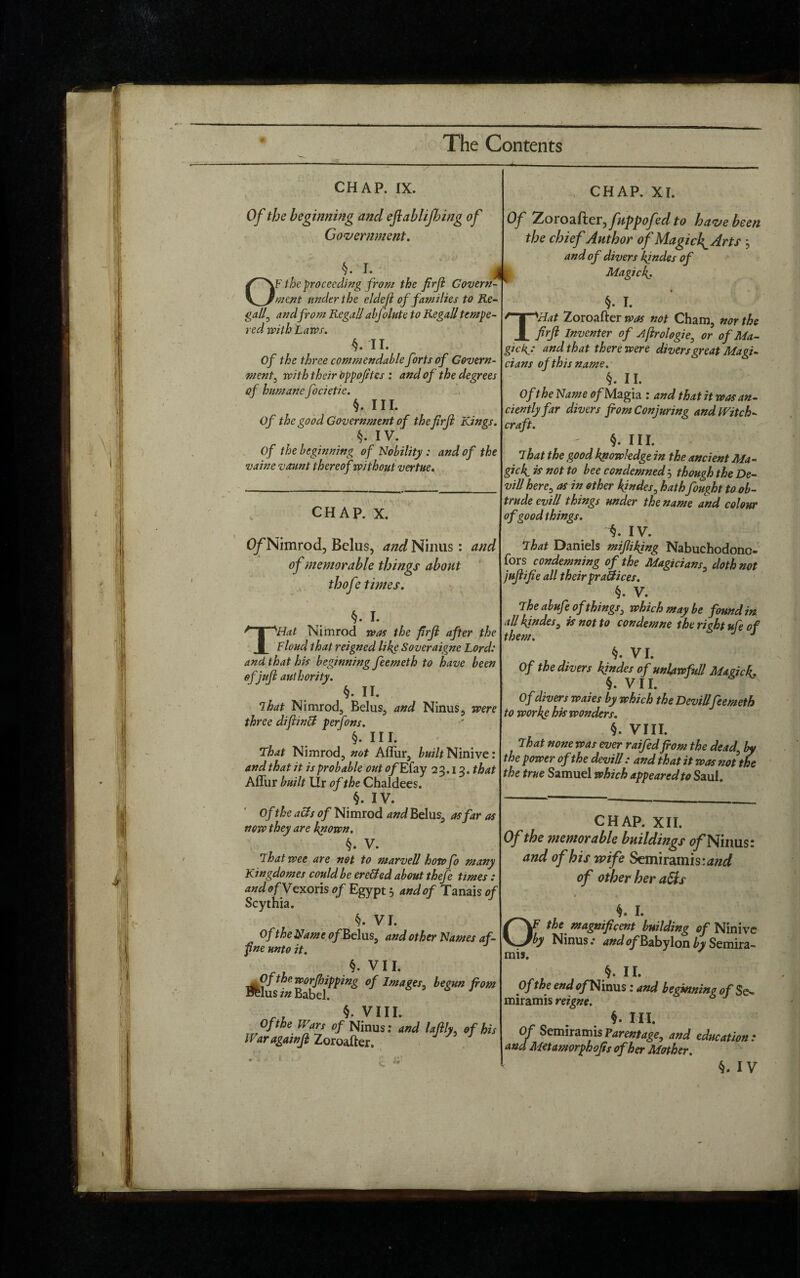 The Contents
CHAP. IX.
Of the beginning and eſtabliſhing of
Government.
§. I.
OF the proceeding from the firſt Govern-
ment under the eldeſt of families to Re-
gall, and from Regall abſolute to Regall tempe-
red with Laws.
§. II.
Of the three commendable ſorts of Govern-
ment, with their oppoſites : and of the degrees
of humane ſocietie.
§. III.
Of the good Government of the firſt Kings.
§. IV.
Of the beginning of Nobility : and of the
vaine vaunt thereof without vertue.
CHAP. X.
Of Nimrod, Belus, and Ninus : and
of memorable things about
thoſe times.
§. I.
THat Nimrod was the firſt after the
Floud that reigned like Soveraigne Lord:
and that his beginning ſeemeth to have been
of juſt authority.
§. II.
That Nimrod, Belus, and Ninus, were
three diſtinct perſons.
§. III.
That Nimrod, not Aſſur, built Ninive:
and that it is probable out of Eſay 23.13. that
Aſſur built Ur of the Chaldees.
§. IV.
Of the acts of Nimrod and Belus, as far as
now they are known.
§. V.
That wee are not to marvell how ſo many
Kingdomes could be erected about theſe times :
and of Vexoris of Egypt ; and of Tanais of
Scythia.
§. VI.
Of the Name of Belus, and other Names af-
fine unto it.
§. VII.
Of the worſhipping of Images, begun from
Belus in Babel.
§. VIII.
Of the Wars of Ninus: and laſtly, of his
War againſt Zoroaſter.
CHAP. XI.
Of Zoroaſter, ſuppoſed to have been
the chief Author of Magick Arts ;
and of divers kindes of
Magick.
§. I.
THat Zoroaſter was not Cham, nor the
firſt Inventer of Aſtrologie, or of Ma-
gick: and that there were divers great Magi-
cians of this name.
§. II.
Of the Name of Magia : and that it was an-
ciently far divers from Conjuring and Witch-
craft.
§. III.
That the good knowledge in the ancient Ma-
gick is not to bee condemned ; though the De-
vill here, as in other kindes, hath ſought to ob-
trude evill things under the name and colour
of good things.
§. IV.
That Daniels miſliking Nabuchodono-
ſors condemning of the Magicians, doth not
juſtifie all their practices.
§. V.
The abuſe of things, which may be found in
all kindes, is not to condemne the right uſe of
them.
§. VI.
Of the divers kindes of unlawfull Magick.
§. VII.
Of divers waies by which the Devill ſeemeth
to worke his wonders.
§. VIII.
That none was ever raiſed from the dead, by
the power of the devill : and that it was not the
the true Samuel which appeared to Saul.
CHAP. XII.
Of the memorable buildings of Ninus:
and of his wife Semiramis: and
of other her acts
§. I.
OF the magnificent building of Ninive
by Ninus: and of Babylon by Semira-
mis.
§. II.
Of the end of Ninus : and beginning of Se-
miramis reigne.
§. III.
Of Semiramis Parentage, and education :
and Metamorphoſis of her Mother.
§. IV